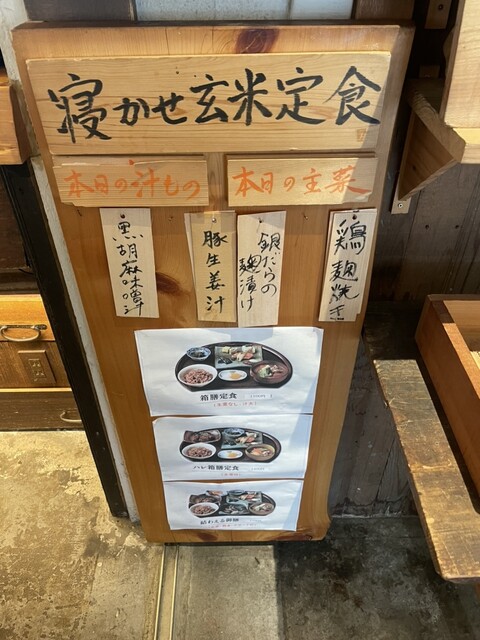 寝かせ玄米定食
本日の汁もの
本日の主菜
黒胡麻味噌汁
豚生姜汁
銀だらの麹漬け
鶏麹焼き
箱膳定食
ハレ箱膳定食
結わえる御膳